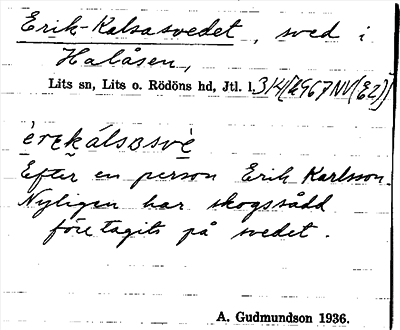 Erik-Kalsasvedet, sved i
Halåsen,
Lits sn, Lits o. Rödöns hd, Jtl. l.
èrɛkálsɒsvè
Efter en person Erik Karlsson.
Nyligen har skogssådd
företagits på svedet.
A. Gudmundson 1936.